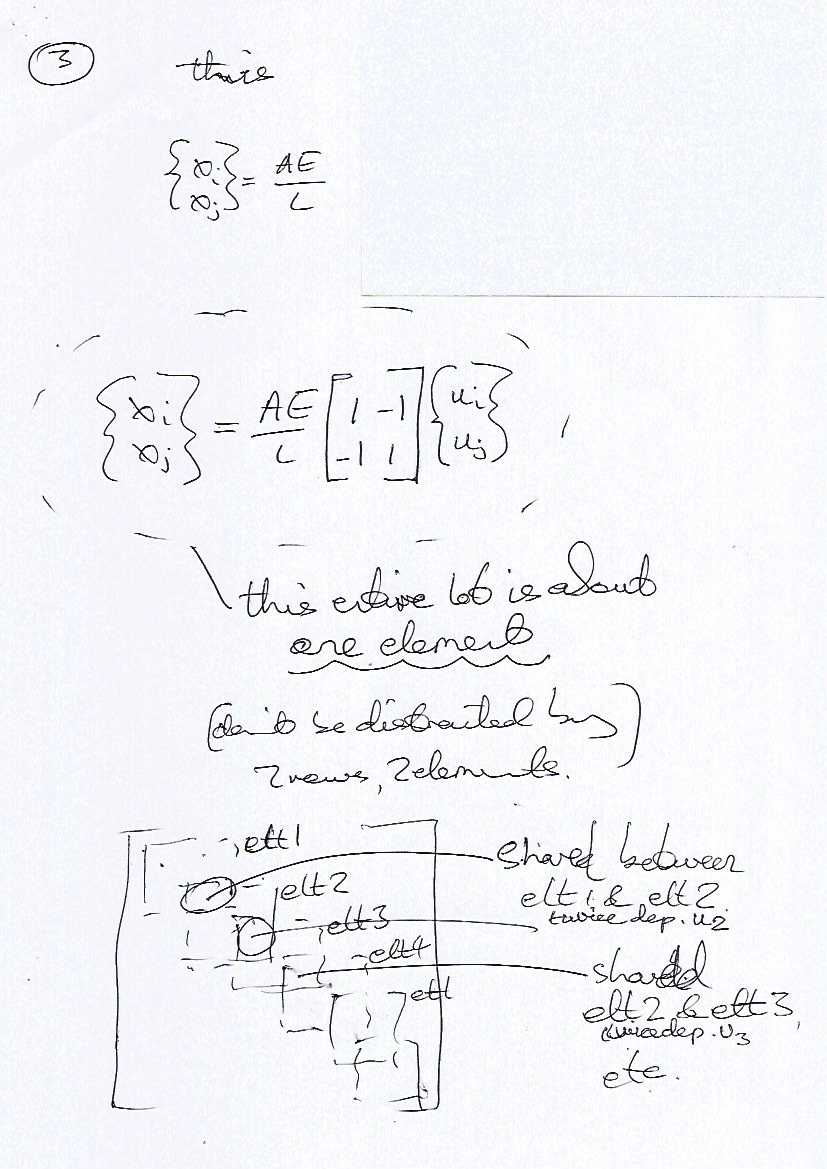 3
this
{xi xj} = AE/L
{xi xj} = AE/L [1 -1 -1 1] {ui uj}
this entire lot is about
one element
(don't be distracted by
2 rows, 2 elements.)
elt1
shared between
elt2
elt 1 & elt 2
twice dep. u2
elt3
elt4
shared
elt
elt 2 & elt 3,
twice dep. u3
etc.